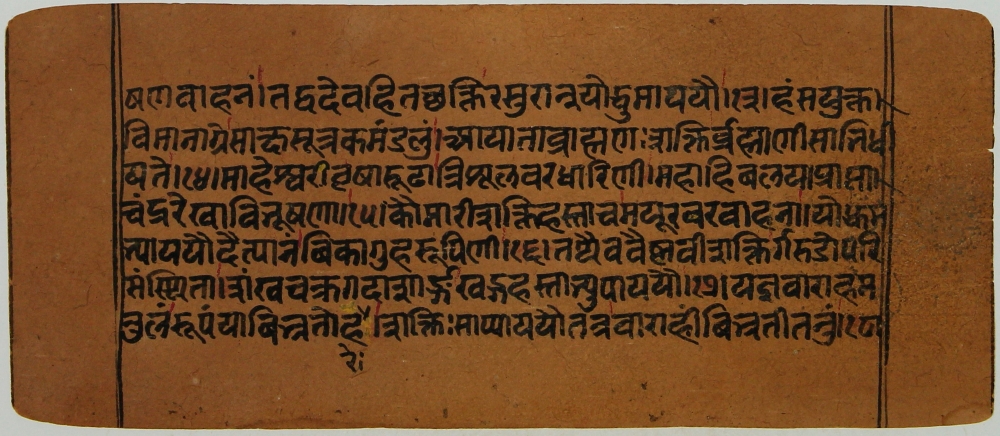 षणवाहनं।तद्वदेवहितच्छक्तिरसुरान्नयोद्धुमाययौ।३।हंसयुक्त।
विमानाग्रेसाक्षसूत्रकमंडलुं।आयाताब्राह्मणःशक्तिर्ब्रह्माणीसाभिधी
यते।४।माहेश्वरीवृषारूढात्रिशूलवरधारिणी।महाहिबलयाप्राप्ता।
चंद्ररेखाविभूषणा।५।कौमारीशक्तिहस्ताचमयूरवरवाहना।योद्धुम
भ्याययौदैत्यानंबिकागुहरूपिणी।६।तथैववैष्णवीशक्तिर्गरुडोपरि
संस्थिता।शंखचक्रगदाशार्ङ्गखड्गहस्ताभ्युपाययौ।७।यज्ञवाराहम
तुलंरूपंयाबिभ्रतोहरे।शक्तिःसाप्याययौतत्रवाराहींबिभ्रतीतनुं।८।
रे।